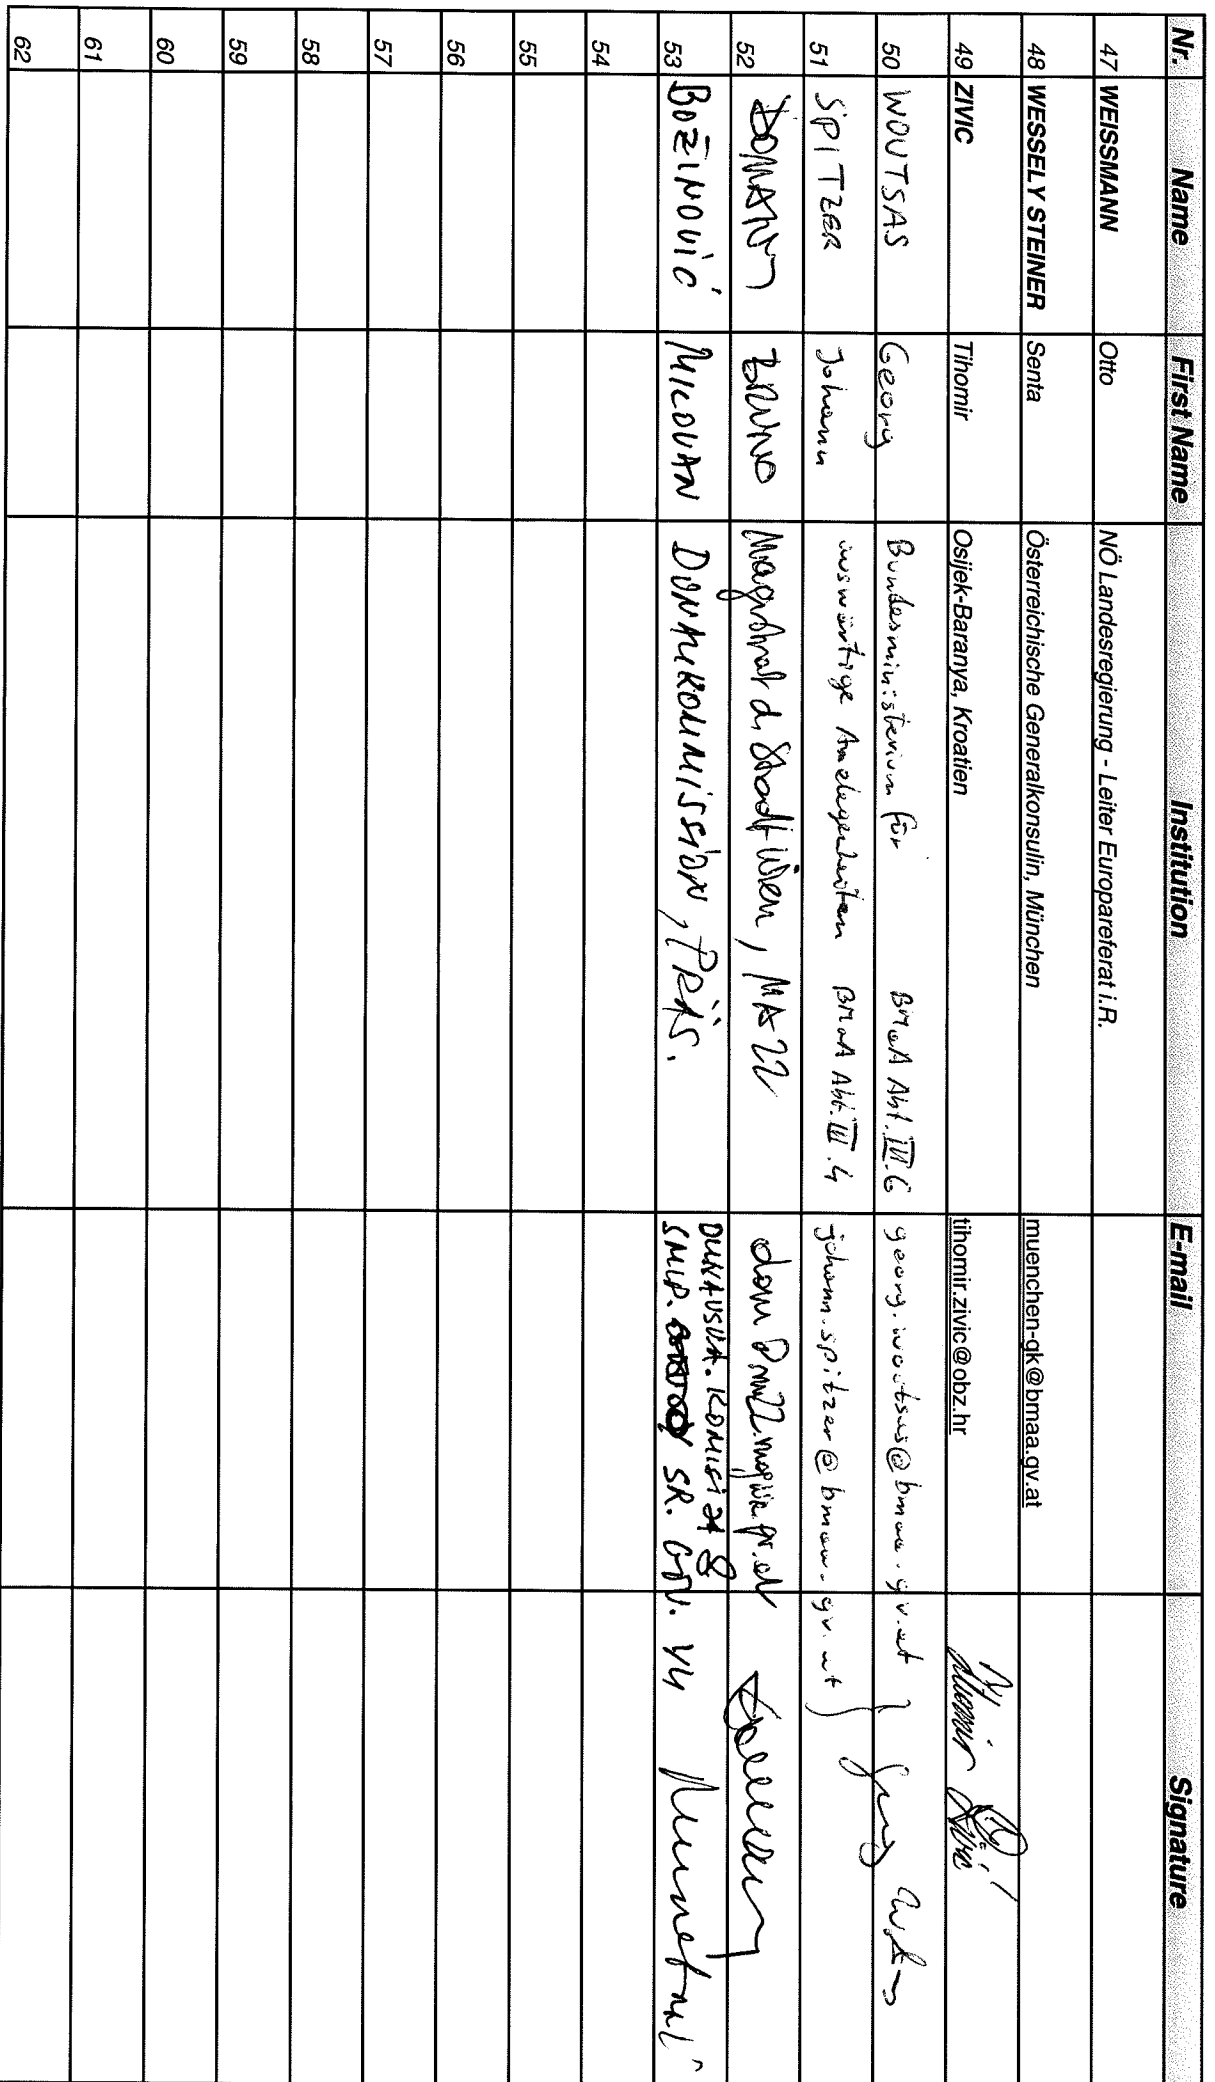 Nr. Name First Name Institution E-mail Signature
47 WEISSMANN Otto NÖ Landesregierung - Leiter Europareferat i.R.
48 WESSELY STEINER Senta Österreichische Generalkonsulin, München muenchen-gk@bmaa.gv.at
49 ZIVIC Tihomir Osijek-Baranya, Kroatien tihomir.zivic@obz.hr
50 WOUTSAS Georg Bundesministerium für BMaA Abt. IV.6 georg.woutsas@bmaa.gv.at
51 SPITZER Johann auswärtige Angelegenheiten BMaA Abt. III.4 johann.spitzer@bmaa.gv.at
52 DOMANY BRUNO Magistrat d. Stadt Wien, MA 22
53 BOŽINOVIĆ MILOVAN DONAUKOMMISSION, PRÄS. DUNAVSKA.KOMISIJA @
SMIP. SR. GOV. YU
54
55
56
57
58
59
60
61
62